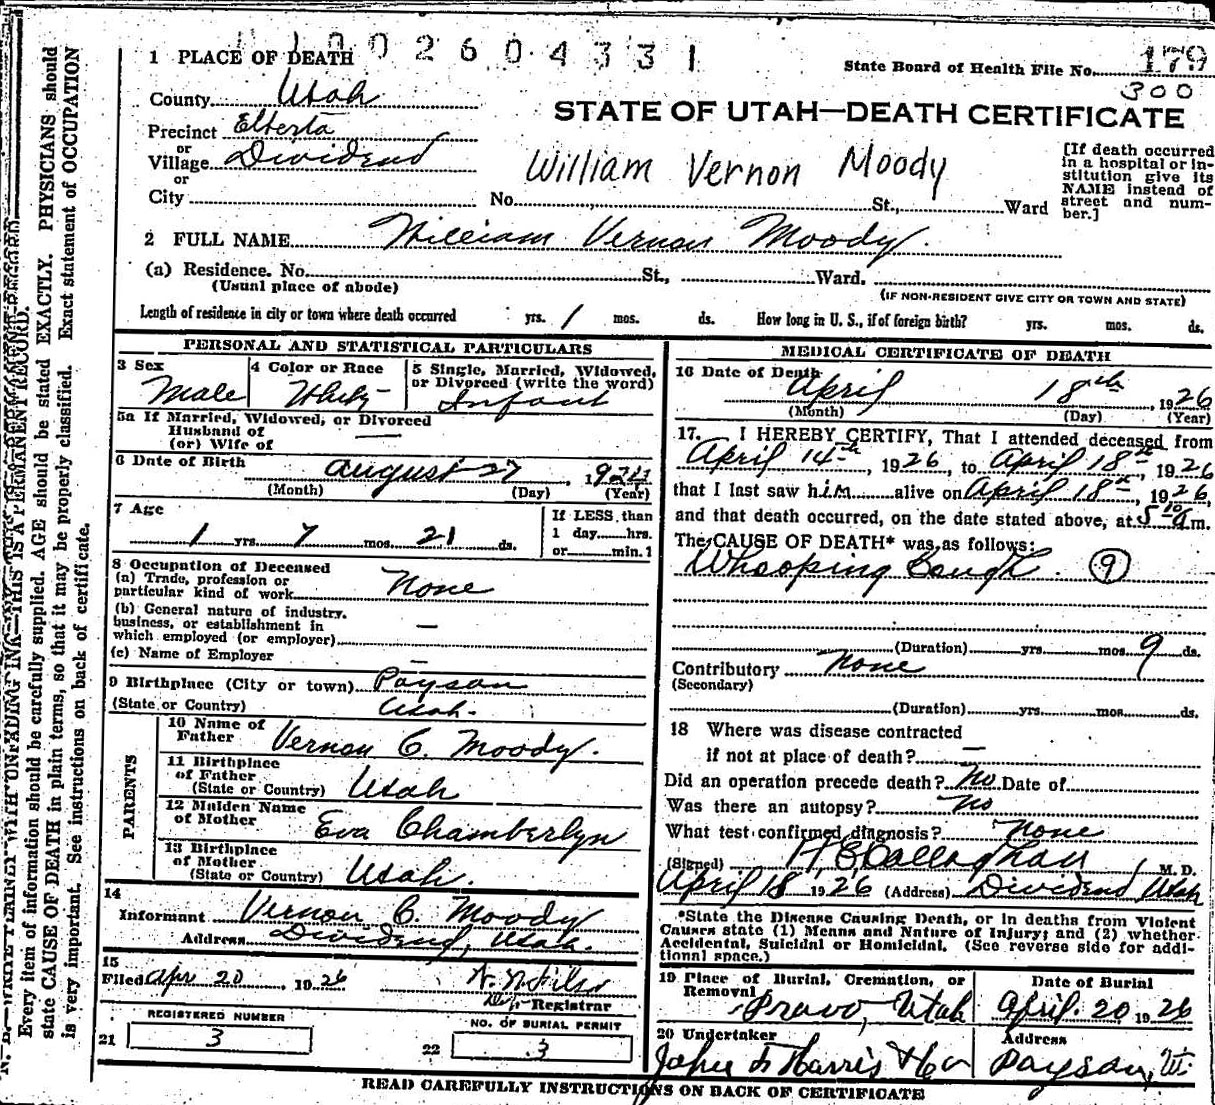 1 PLACE OF DEATH
1002604331
State Board of Health File No. 179
300
County Utah
STATE OF UTAH—DEATH CERTIFICATE
Precinct Elberta
or
Village Dividend
or
City No. St., Ward
William Vernon Moody
[If death occurred
in a hospital or in-
stitution give its
NAME instead of
street and num-
ber.]
2 FULL NAME William Vernon Moody.
(a) Residence. No. St., Ward.
(Usual place of abode)
(IF NON-RESIDENT GIVE CITY OR TOWN AND STATE)
Length of residence in city or town where death occurred yrs. 1 mos. ds. How long in U. S., if of foreign birth? yrs. mos. ds.
PERSONAL AND STATISTICAL PARTICULARS
3 Sex
Male
4 Color or Race
White
5 Single, Married, Widowed,
or Divorced (write the word)
Infant
5a If Married, Widowed, or Divorced
Husband of
(or) Wife of —
6 Date of Birth
August 27, 1924
(Month) (Day) (Year)
7 Age
1 yrs. 7 mos. 21 ds.
If LESS than
1 day hrs.
or min.
8 Occupation of Deceased
(a) Trade, profession or
particular kind of work None
(b) General nature of industry,
business, or establishment in
which employed (or employer) —
(c) Name of Employer —
9 Birthplace (City or town) Payson
(State or Country) Utah.
PARENTS
10 Name of
Father Vernon C. Moody.
11 Birthplace
of Father
(State or Country) Utah
12 Maiden Name
of Mother Eva Chamberlyn
13 Birthplace
of Mother
(State or Country) Utah.
14
Informant Vernon C. Moody
Address Dividend, Utah.
15
Filed Apr 20, 1926
Registrar
REGISTERED NUMBER
21 3
NO. OF BURIAL PERMIT
22 3
MEDICAL CERTIFICATE OF DEATH
16 Date of Death
April 18th, 1926
(Month) (Day) (Year)
17. I HEREBY CERTIFY, That I attended deceased from
April 14th, 1926, to April 18th 1926
that I last saw him alive on April 18th, 1926,
and that death occurred, on the date stated above, at 5 10 a m.
The CAUSE OF DEATH* was as follows:
Whooping Cough. 9
(Duration) yrs mos 9 ds.
Contributory None
(Secondary)
(Duration) yrs mos ds.
18 Where was disease contracted
if not at place of death? —
Did an operation precede death? No Date of
Was there an autopsy? No
What test confirmed diagnosis? None
(Signed) H E Callaghan M. D.
April 18 1926 (Address) Dividend, Utah
*State the Disease Causing Death, or in deaths from Violent
Causes state (1) Means and Nature of Injury; and (2) whether
Accidental, Suicidal or Homicidal. (See reverse side for addi-
tional space.)
19 Place of Burial, Cremation, or
Removal
Provo, Utah
Date of Burial
April. 20 1926
20 Undertaker
Address
Payson, Ut.
READ CAREFULLY INSTRUCTIONS ON BACK OF CERTIFICATE
N. B.—WRITE PLAINLY WITH UNFADING INK—THIS IS A PERMANENT RECORD.
Every item of information should be carefully supplied. AGE should be stated EXACTLY. PHYSICIANS should
state CAUSE OF DEATH in plain terms, so that it may be properly classified. Exact statement of OCCUPATION
is very important. See instructions on back of certificate.